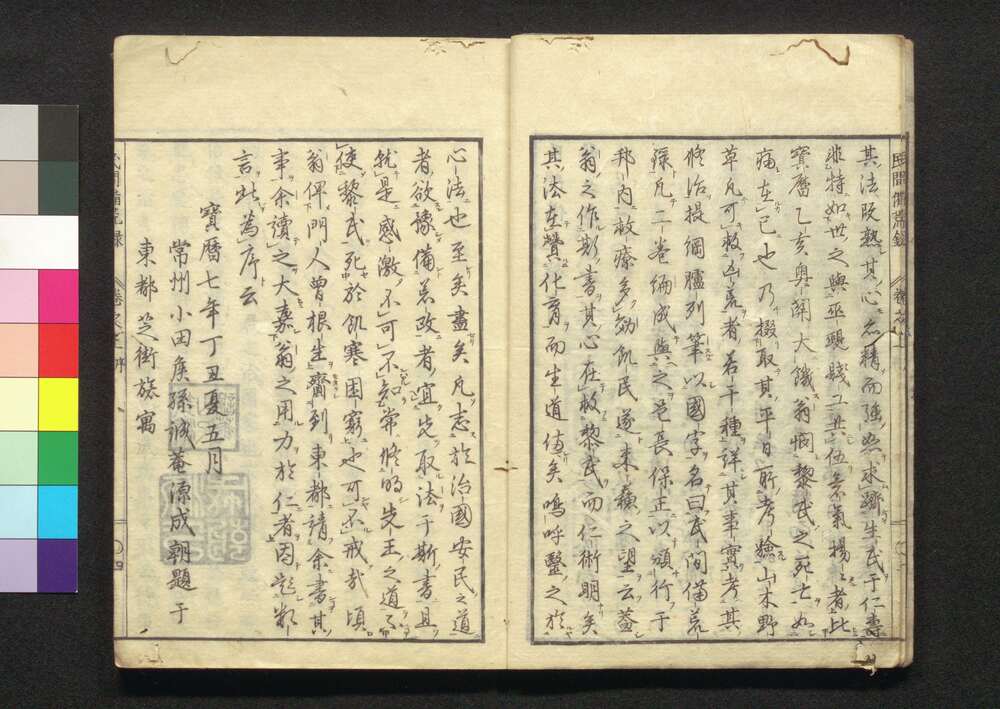 其法既熟其心亦精而強如求躋生民于仁壽
非特如世之與巫覡賤工共伍意氣揚々者比
寶曆乙亥奧関大饑翁憫黎民之死亡如
痛在己也乃掇取其平日所考驗山木野
草凡可救凶荒者若干種詳其事實考其
修治提綱臚列筆以國字名曰民間備荒
錄凡二卷編成與之邑長保正以頒行于
邦內救療多効飢民遂来蘓之望云蓋
翁之作斯書其心在救黎民而仁術明矣
其法在贊化育而生道俻矣嗚呼毉之於
民間備荒録 卷之上
心法也至矣盡矣凡志於治國安民之道
者欲豫備荒政者宜先取法于斯書且
就是感激不可不知常修的先王之道而
使黎民死於飢寒困窮也可不戒哉頃
翁俾門人曽根生齎到東都請余書其
事余讀之大嘉翁之用力於仁者因
言此為序云
寶曆七年丁丑夏五月
常州小田矦孫誠菴源成朝題于
東都芝街旅寓